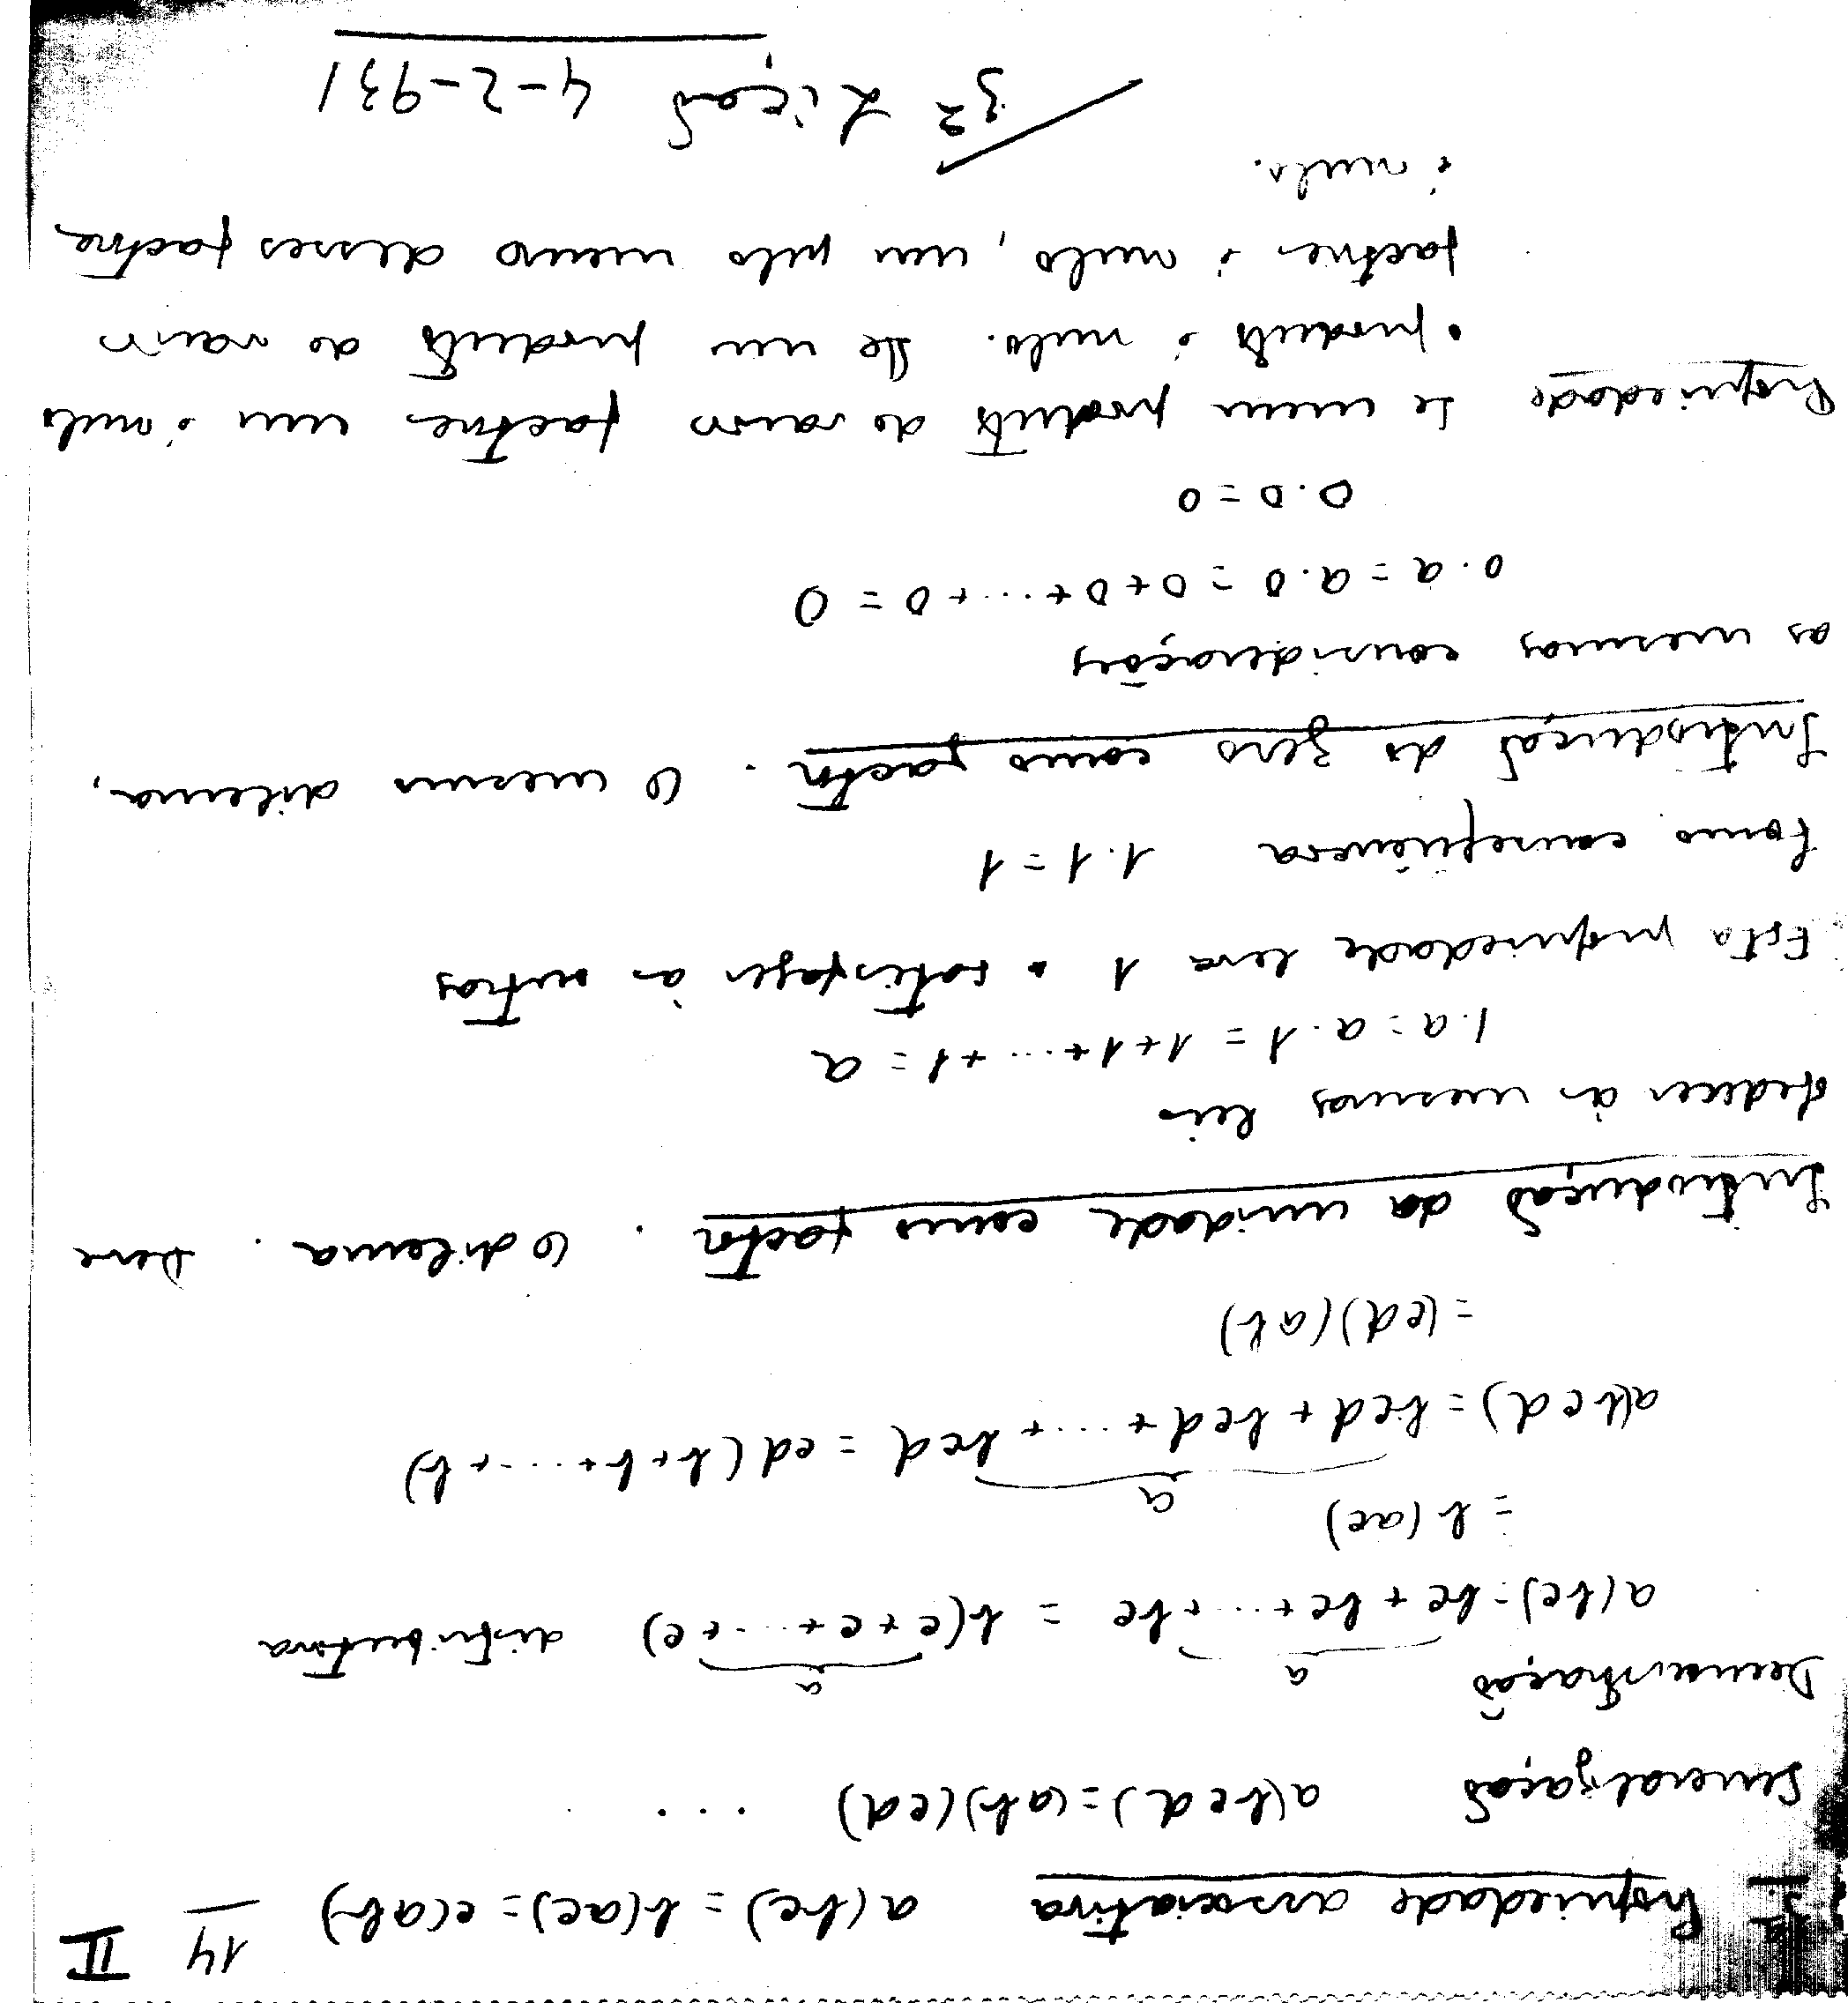 14 II
3ª Propriedade associativa a(bc) = b(ac) = c(ab)
Generalização a(bcd) = (ab)(cd) ...
Demonstração a a
a(bc) = bc + bc + ... + bc = b(c + c + ... + c) distributiva
= b(ac)
a
a(bcd) = bcd + bcd + ... + bcd = cd(b + b + ... + b)
= (cd)(ab)
Introdução da unidade como factor. O dilema. Deve
obedecer às mesmas leis
1.a = a.1 = 1+1+...+1 = a
Esta propriedade leva 1 a satisfazer às outras
Como consequência 1.1 = 1
Introdução do zero como factor. O mesmo dilema,
as mesmas considerações
0.a = a.0 = 0+0+...+0 = 0
0.0 = 0
Propriedade Se num producto de varios factores um é nulo
o producto é nulo. Se um producto de varios
factores é nulo, um pelo menos desses factores
é nulo.
3ª Lição 4-2-931